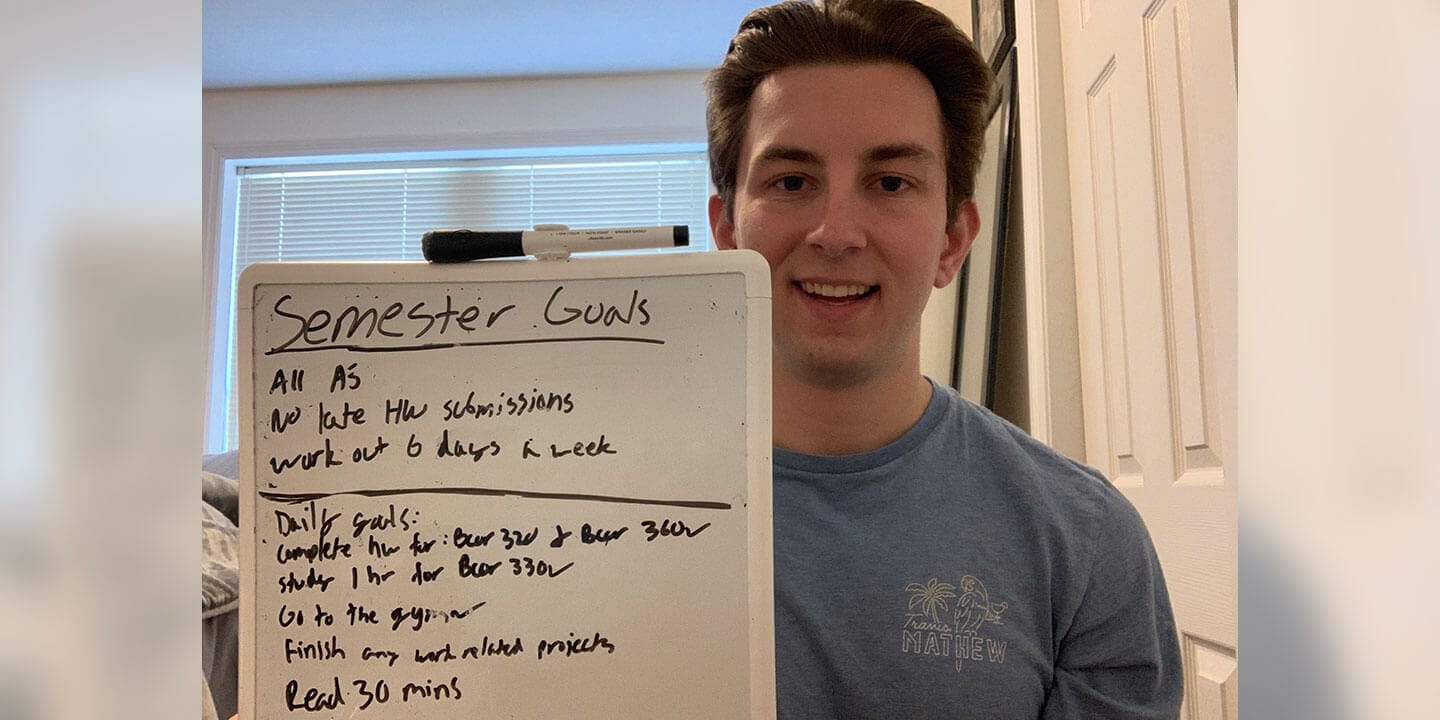 Semester Goals
All A's
No late HW submissions
work out 6 days a week
Daily goals:
complete hw for: Bcor 320 & Bcor 360
study 1 hr for Bcor 330
Go to the gym
Finish any work related projects
Read 30 mins
Travis
MATHEW